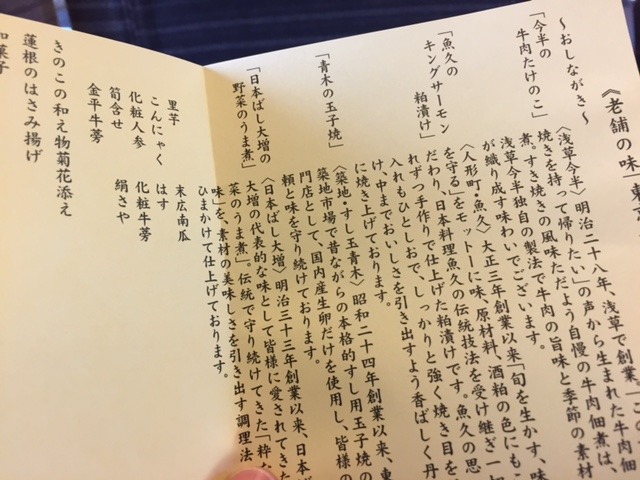 《老舗の味
〜おしながき〜
「今半の
牛肉たけのこ」
〈浅草今半〉明治二十八年、浅草で創業。「この
焼きを持って帰りたい」の声から生まれた牛肉佃
煮。すき焼きの風味ただよう自慢の牛肉佃煮は、
浅草今半独自の製法で牛肉の旨味と季節の素材
が織り成す味わいでございます。
「魚久の
キングサーモン
粕漬け」
〈人形町・魚久〉大正三年創業以来「旬を生かす、味
を守る」をモットーに味、原材料、酒粕の色にもこ
だわり、日本料理魚久の伝統技法を受け継ぎ一切
れずつ手作りで仕上げた粕漬けです。魚久の思
入れもひとしおで、しっかりと強く焼き目を
け、中までおいしさを引き出すよう香ばしく丹
に焼き上げております。
「青木の玉子焼」
〈築地・すし玉青木〉昭和二十四年創業以来、東
築地市場で昔ながらの本格的すし用玉子焼の
門店として、国内産生卵だけを使用し、皆様の
頼と味を守り続けております。
「日本ばし大増の
野菜のうま煮」
〈日本ばし大増〉明治三十三年創業以来、日本ば
大増の代表的な味として皆様に愛されてきた
菜のうま煮」。伝統で守り続けてきた「粋な
味」を、素材の美味しさを引き出す調理法
ひまかけて仕上げております。
里芋 末広南瓜
こんにゃく はす
化粧人参 化粧牛蒡
筍含せ 絹さや
金平牛蒡
きのこの和え物菊花添え
蓮根のはさみ揚げ
和菓子